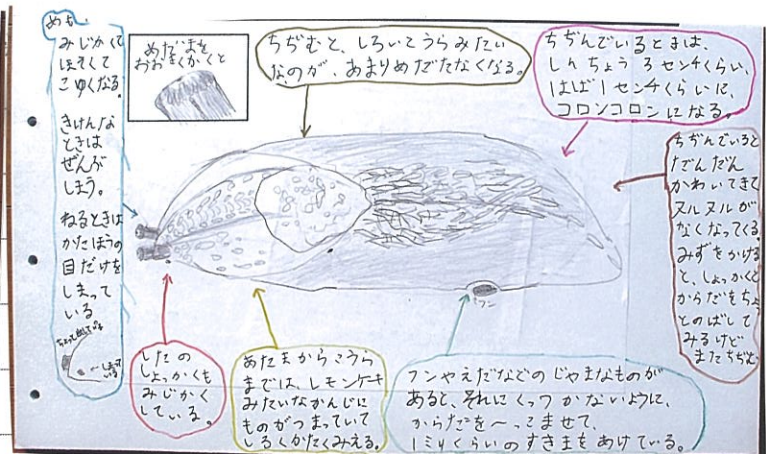 めも
みじかくて
ほそくて
こゆくなる。
きけんな
ときは
ぜんぶ
しまう。
ねるときは
かたほうの
目だけを
しまって
いる
ちょっと出している
←しまって
いる
めだまを
おおきくかくと
ちぢむと、しろいてうらみたい
なのが、あまりめだたなくなる。
ちぢんでいるときは、
しんちょう3センチくらい、
はば1センチくらいに、
コロンコロンになる。
ちぢんでいると
だんだん
かわいてきて
ヌルヌルが
なくなってくる。
みずをかける
と、しょっかくと
からだをちょっ
とのばして
みるけど
またちぢむ
したの
しょっかくも
みじかく
している。
あたまからこうら
までは、レモンケーキ
みたいなかんじに
ものがつまっていて
しろくかたくみえる。
フン
フンやえだなどのじゃまなものが
あると、それにくっつかないように、
からだをへっこませて、
1ミリくらいのすきまをあけている。